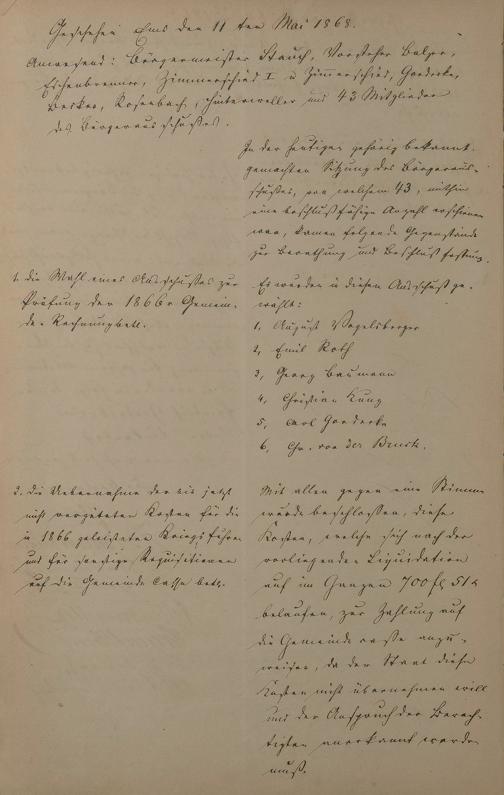 Geschehen Ems den 11ten Mai 1868.
Anwesend: Bürgermeister Stauch, Vorsteher Balzer,
Eschenbrenner, Zimmerschied I u Zimmerschied, Goedecke,
Becker, Rosenbach, Hinterweller und 43 Mitglieder
des Bürgerausschußes.
In der heutigen gehörig bekannt
gemachten Sitzung des Bürgeraus-
schußes, von welchem 43, mithin
eine beschlußfähige Anzahl erschienen
war, kamen folgende Gegenstände
zur Berathung und Beschlußfassung.
1. die Wahl eines Ausschußes zur
Prüfung der 1866r Gemein-
de Rechnung betr.
Es wurden in diesen Ausschuß ge-
wählt:
1, August Vogelsberger
2, Emil Roth
3, Georg Baumann
4, Christian Kunz
5, Carl Goedecke
6, Chr. von der Bruck.
2. die Uebernahme der bis jetzt
nicht vergüteten Kosten für die
in 1866 geleisteten Kriegsfuhren
und für sonstige Requisitionen
auf die Gemeinde Casse betr.
Mit allen gegen eine Stimme
wurde beschlossen, diese
Kosten, welche sich nach der
vorliegenden Liquidation
auf im Ganzen 700 fl 51 x
belaufen, zur Zahlung auf
die Gemeindecasse anzu-
weisen, da der Staat diese
Kosten nicht übernehmen will
und der Anspruch der Berech-
tigten anerkannt werden
muß.